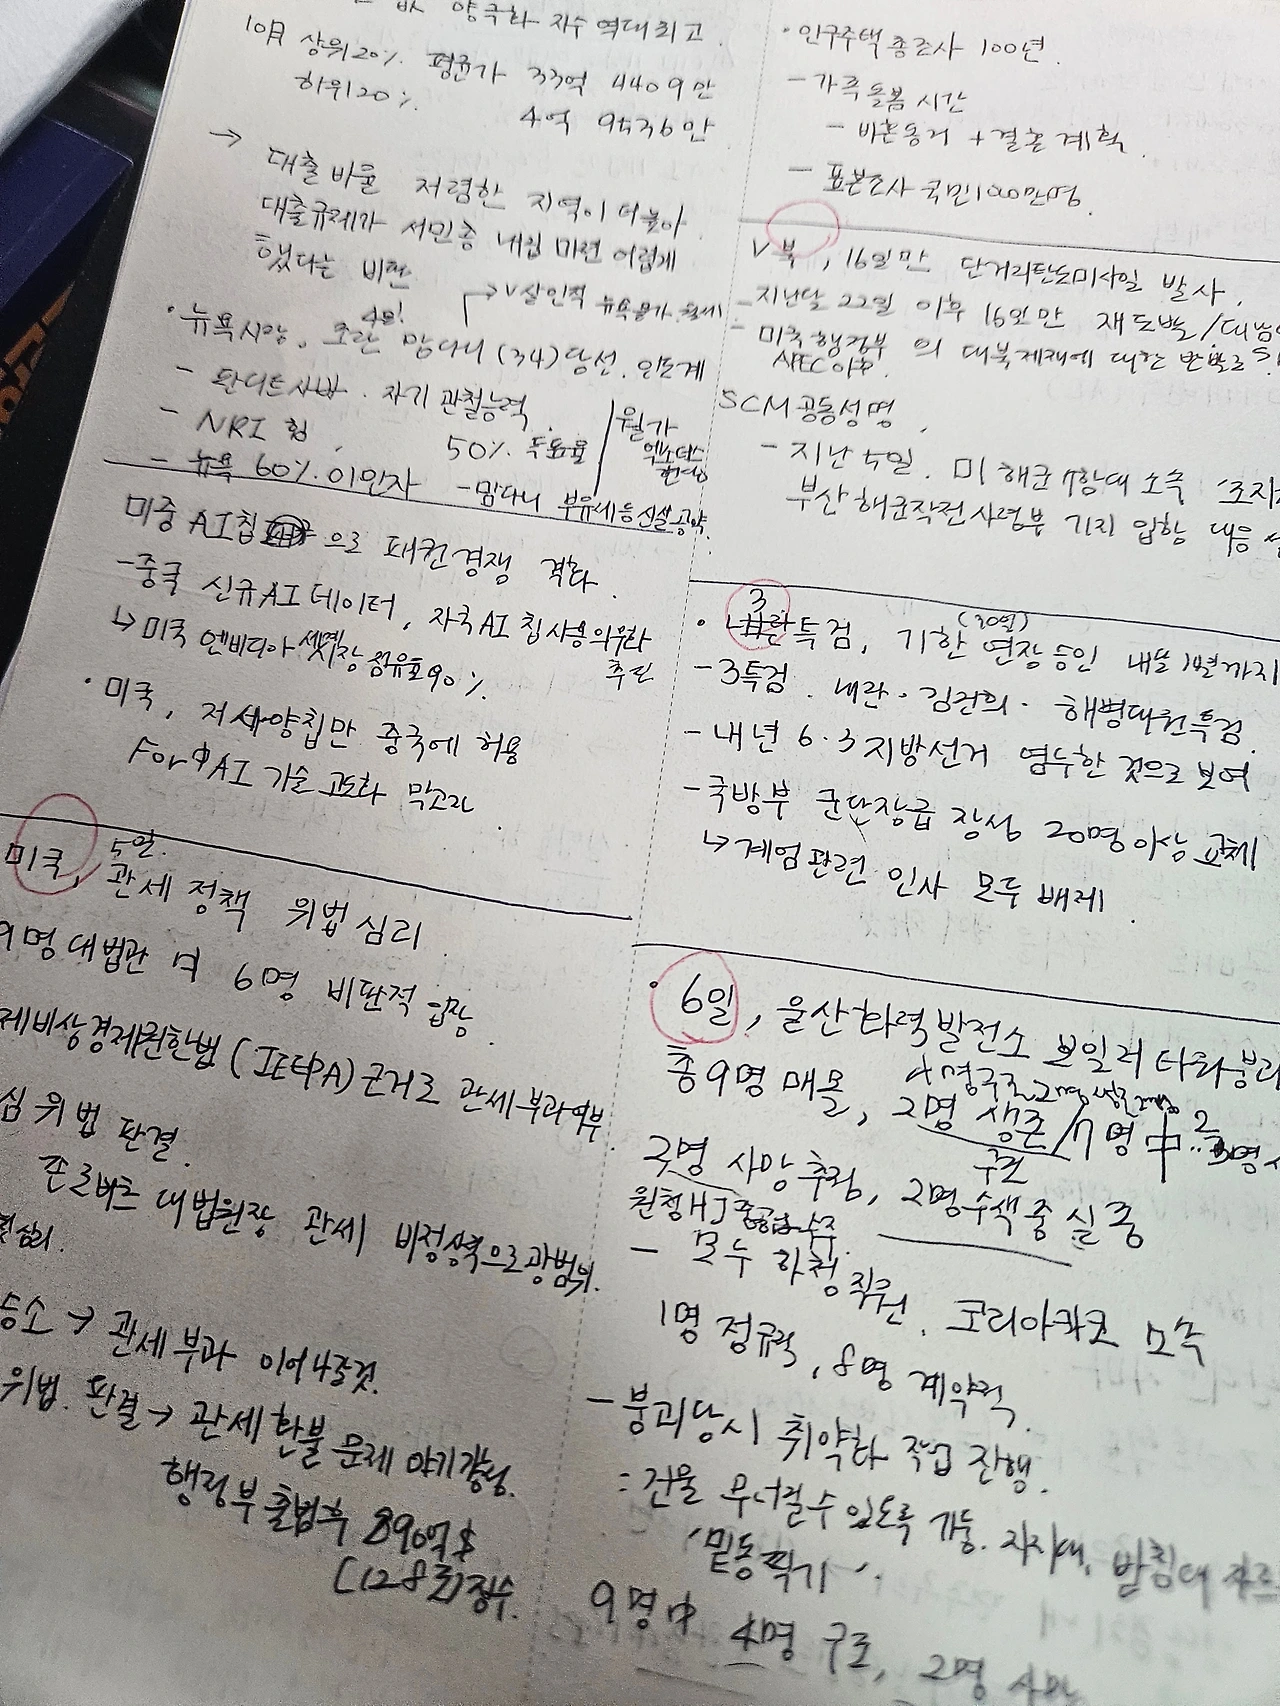 양극화 지수 역대 최고
10月 상위 20% 평균가 33억 4409만
하위 20% 4억 9536만
→ 대출 비율 저렴한 지역이 더 높아
대출규제가 서민층 내집 마련 어렵게
했다는 비판
4일!
→ V 살인적 뉴욕물가. 월세
· 뉴욕시장, 조란 맘다니 (34) 당선. 인도계
- 자기 관철능력
- NRI 힘 50% 득표율
월가
엑소더스
현상
- 뉴욕 60% 이민자 - 맘다니 부유세 등 신설 공약.
미중 AI칩 으로 패권경쟁 격화
- 중국 신규 AI 데이터, 자국 AI 칩 사용 의무화
추진
↳ 미국 엔비디아 시장 점유율 90%
· 미국, 저사양칩만 중국에 허용
For 中 AI 기술 고도화 막고자
5일.
미국, 관세 정책 위법 심리
9명 대법관 中 6명 비판적 입장
제비상경제권한법 (IEEPA) 근거로 관세 부과 여부
심 위법 판결.
존 로버츠 대법원장 관세 비정상적으로 광범위.
심리.
승소 → 관세 부과 이어나갈것.
위법. 판결 → 관세 환불 문제 야기
행정부 출범후 890억$
(128조) 징수.
· 인구주택 총조사 100년.
- 가족돌봄 시간
- 비혼동거 + 결혼 계획
- 표본조사 국민 1000만명.
V 북, 16일만 단거리탄도미사일 발사.
- 지난달 22일 이후 16일만 재도발 /
- 미국 행정부의 대북제재에 대한 반발로
APEC 이후.
SCM 공동성명
- 지난 5일. 미 해군 7함대 소속
부산 해군작전사령부 기지 입항 대응
3
(30일)
· 내란특검, 기한 연장 승인 내달 까지
- 3특검. 내란·김건희·해병대원 특검
- 내년 6·3 지방선거 염두한 것으로 보여
- 국방부 군단장급 장성 20명 이상 교체
↳ 계엄 관련 인사 모두 배제.
· 6일, 울산화력발전소 보일러 타워 붕괴
4명 구조, 2명
총 9명 매몰, 2명 생존 / 7명 中
구조
2명 사망 추정, 2명 수색중 실종
원청 HJ 중공업 수주
- 모두 하청직원. 코리아카코 소속
1명 정규직, 8명 계약직
- 붕괴당시 취약화 작업 진행
: 건물 무너질 수 있도록 기둥. 지지대, 받침대
'밑동 찍기'.
9명 中 4명 구조, 2명 사망